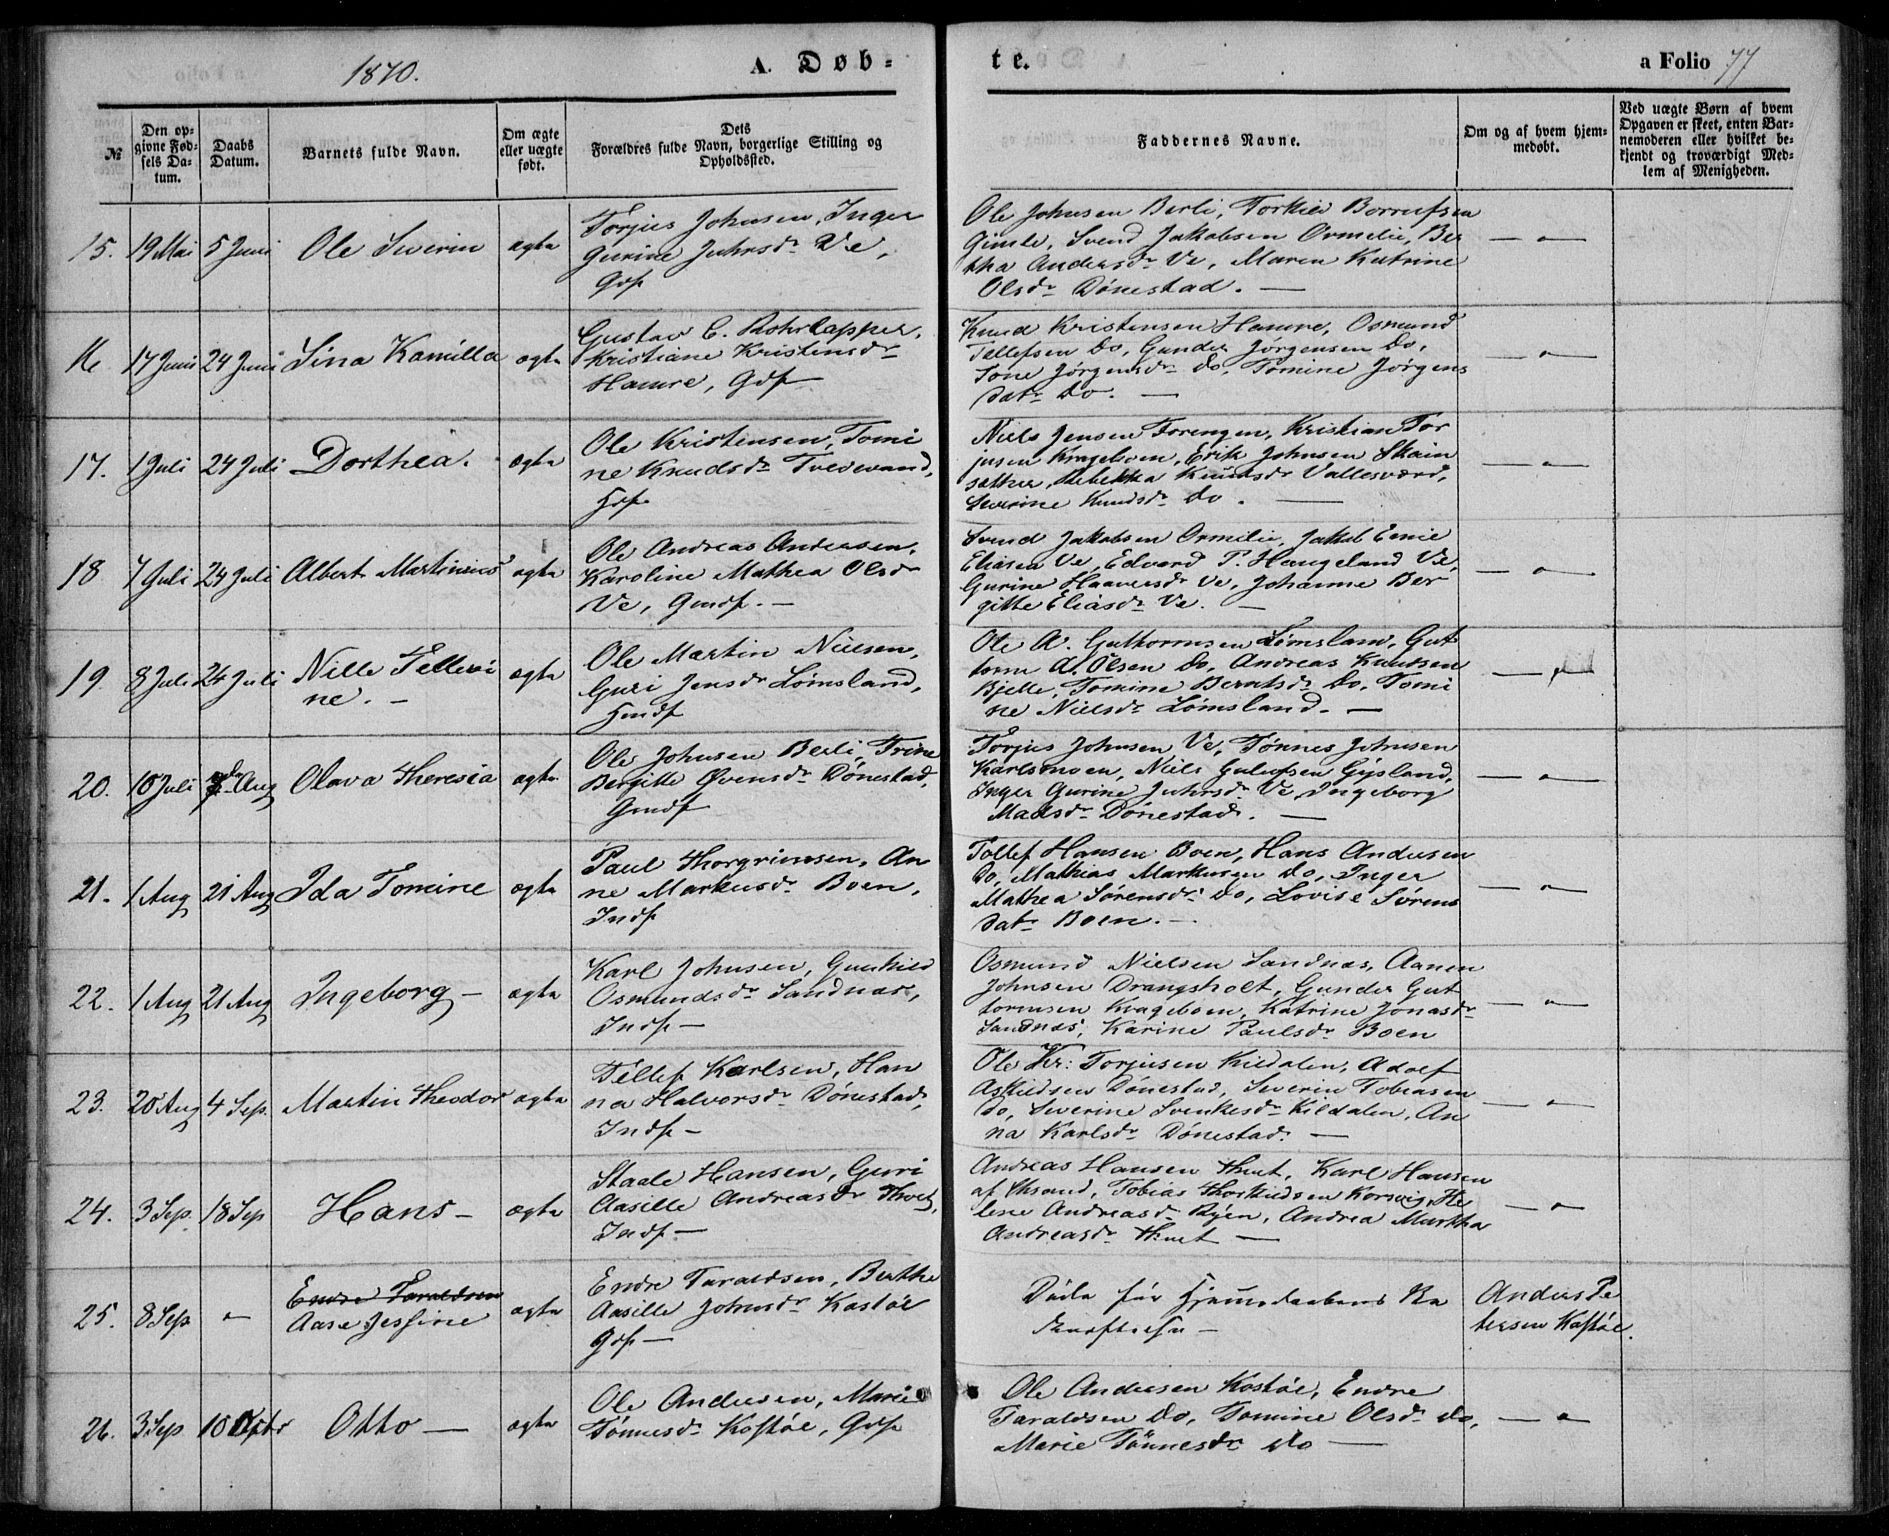 1870.
A. Døb-
te.
a Folio 77
№
Den op-
givne Fød-
sels Da-
tum.
Daabs
Datum.
Barnets fulde Navn.
Om ægte
eller uægte
født.
Dets
Forældres fulde Navn, borgerlige Stilling og
Opholdssted.
Faddernes Navne.
Om og af hvem hjem-
medøbt.
Ved uægte Børn af hvem
Opgaven er skeet, enten Bar-
nemoderen eller hvilket be-
kjendt og troværdigt Med-
lem af Menigheden.
15. 19 Mai 5 Juni Ole Severin ægte
Torjus Johnsen, Inger
Gurine Juhrsdr Ve,
Gdf
Ole Johnsen Berli, Torkild
Gimle, Svend Jakobsen Ormelie, Ber
tha Andersdr Ve, Maren Katrine
Olsdr Dønestad. —
— „ —
16 17 Juni 24 Juni Sina Kamilla ægte
Gustav C. Rohrlapper,
Kristiane Kristensdr
Hamre, Gdf
Knud Kristensen Hamre, Osmund
Tellefsen Do, Gunder Jørgensen Do,
Tone Jørgensdr Do, Tomine Jørgens
datr Do. —
— „ —
17. 1 Juli 24 Juli Dorthea. ægte
Ole Kristensen, Tomi
ne Knudsdr Tvedevand,
Hdf
Niels Jensen Forengen, Kristian Tor
jusen Krageboen, Erik Johnsen Skain
sæther, Rebekka Knudsdr Vallesværd,
Severine Knudsdr Do. —
— „ —
18 7 Juli 24 Juli Albert Martinius ægte
Ole Andreas Andersen,
Karoline Mathea Olsdr
Ve, Gmdf. —
Svend Jakobsen Ormelie, Jakob Emil
Eliasen Ve, Edvard T. Haugeland Ve,
Gurine Haaversdr Ve, Johanne Ber
gitte Eliasdr Ve. —
— „ —
19. 8 Juli 24 Juli Nille Tellevi
ne. — ægte
Ole Martin Nielsen,
Guri Jensdr Lømsland,
Hmdf
Ole A. Guthormsen Lømsland, Gut
torm A. Olsen Do, Andreas Knudsen
Kjelle, Tomine Berntsdr Do, Tomi
ne Nielsdr Lømsland. —
20. 10 Juli Aug Olava Theresia ægte
Ole Johnsen Berli, Trine
Bergitte Øvensdr Dønestad,
Gmdf
Torjus Johnsen Ve, Tønnes Johnsen
Karlsmoen, Niels Gulufsen Gysland,
Inger Gurine Juhrsdr Ve, Ingeborg
Madsdr Dønestad. —
— „ —
21. 1 Aug 21 Aug Ida Tomine ægte
Paul Thorgrimsen, An
ne Markusdr Boen,
Indf
Tollef Hansen Boen, Hans Andersen
Do, Mathias Markusen Do, Inger
Mathea Sørensdr Do, Lovise Sørens
datr Boen. —
— „ —
22. 1 Aug 21 Aug Ingeborg — ægte
Karl Johnsen, Gunhild
Osmundsdr Sandnæs,
Indf —
Osmund Nielsen Sandnæs, Aanen
Johnsen Drangsholt, Gunder Gut
tormsen Krageboen, Katrine Jonasdr
Sandnæs, Karine Paulsdr Boen
— „ —
23. 20 Aug 4 Sep. Martin Theodor ægte
Tellef Karlsen, Han
na Halvorsdr Dønestad,
Indf —
Ole Kr: Torjusen Kildalen, Adolf
Askildsen Dønestad, Severin Tobiasen
Do, Severine Svenkesdr Kildalen, An
na Karlsdr Dønestad. —
— „ —
24. 3 Sep. 18 Sep Hans — ægte
Staale Hansen, Guri
Aasille Andreasdr Thvet,
Indf —
Andreas Hansen Thvet, Karl Hansen
af Chrsand, Tobias Thorkildsen Korsvig, He
lene Andreasdr Ryen, Andrea Martha
Andreasdr Thvet —
— „ —
25. 8 Sep „ Endre Taraldsen
Aase Jessine ægte
Endre Taraldsen, Berthe
Aasille Johnsdr Kostøl
Gdf —
Døde før Hjemmedaabens Be
kræftelse —
Anders Pe
tersen Kostøl.
26. 3 Sep 10 Octbr Otto — ægte
Ole Andersen, Marie
Tønnesdr Kostøl, Gdf
Ole Andersen Kostøl, Endre
Taraldsen Do, Tomine Olsdr Do,
Marie Tønnesdr Do —
— „ —